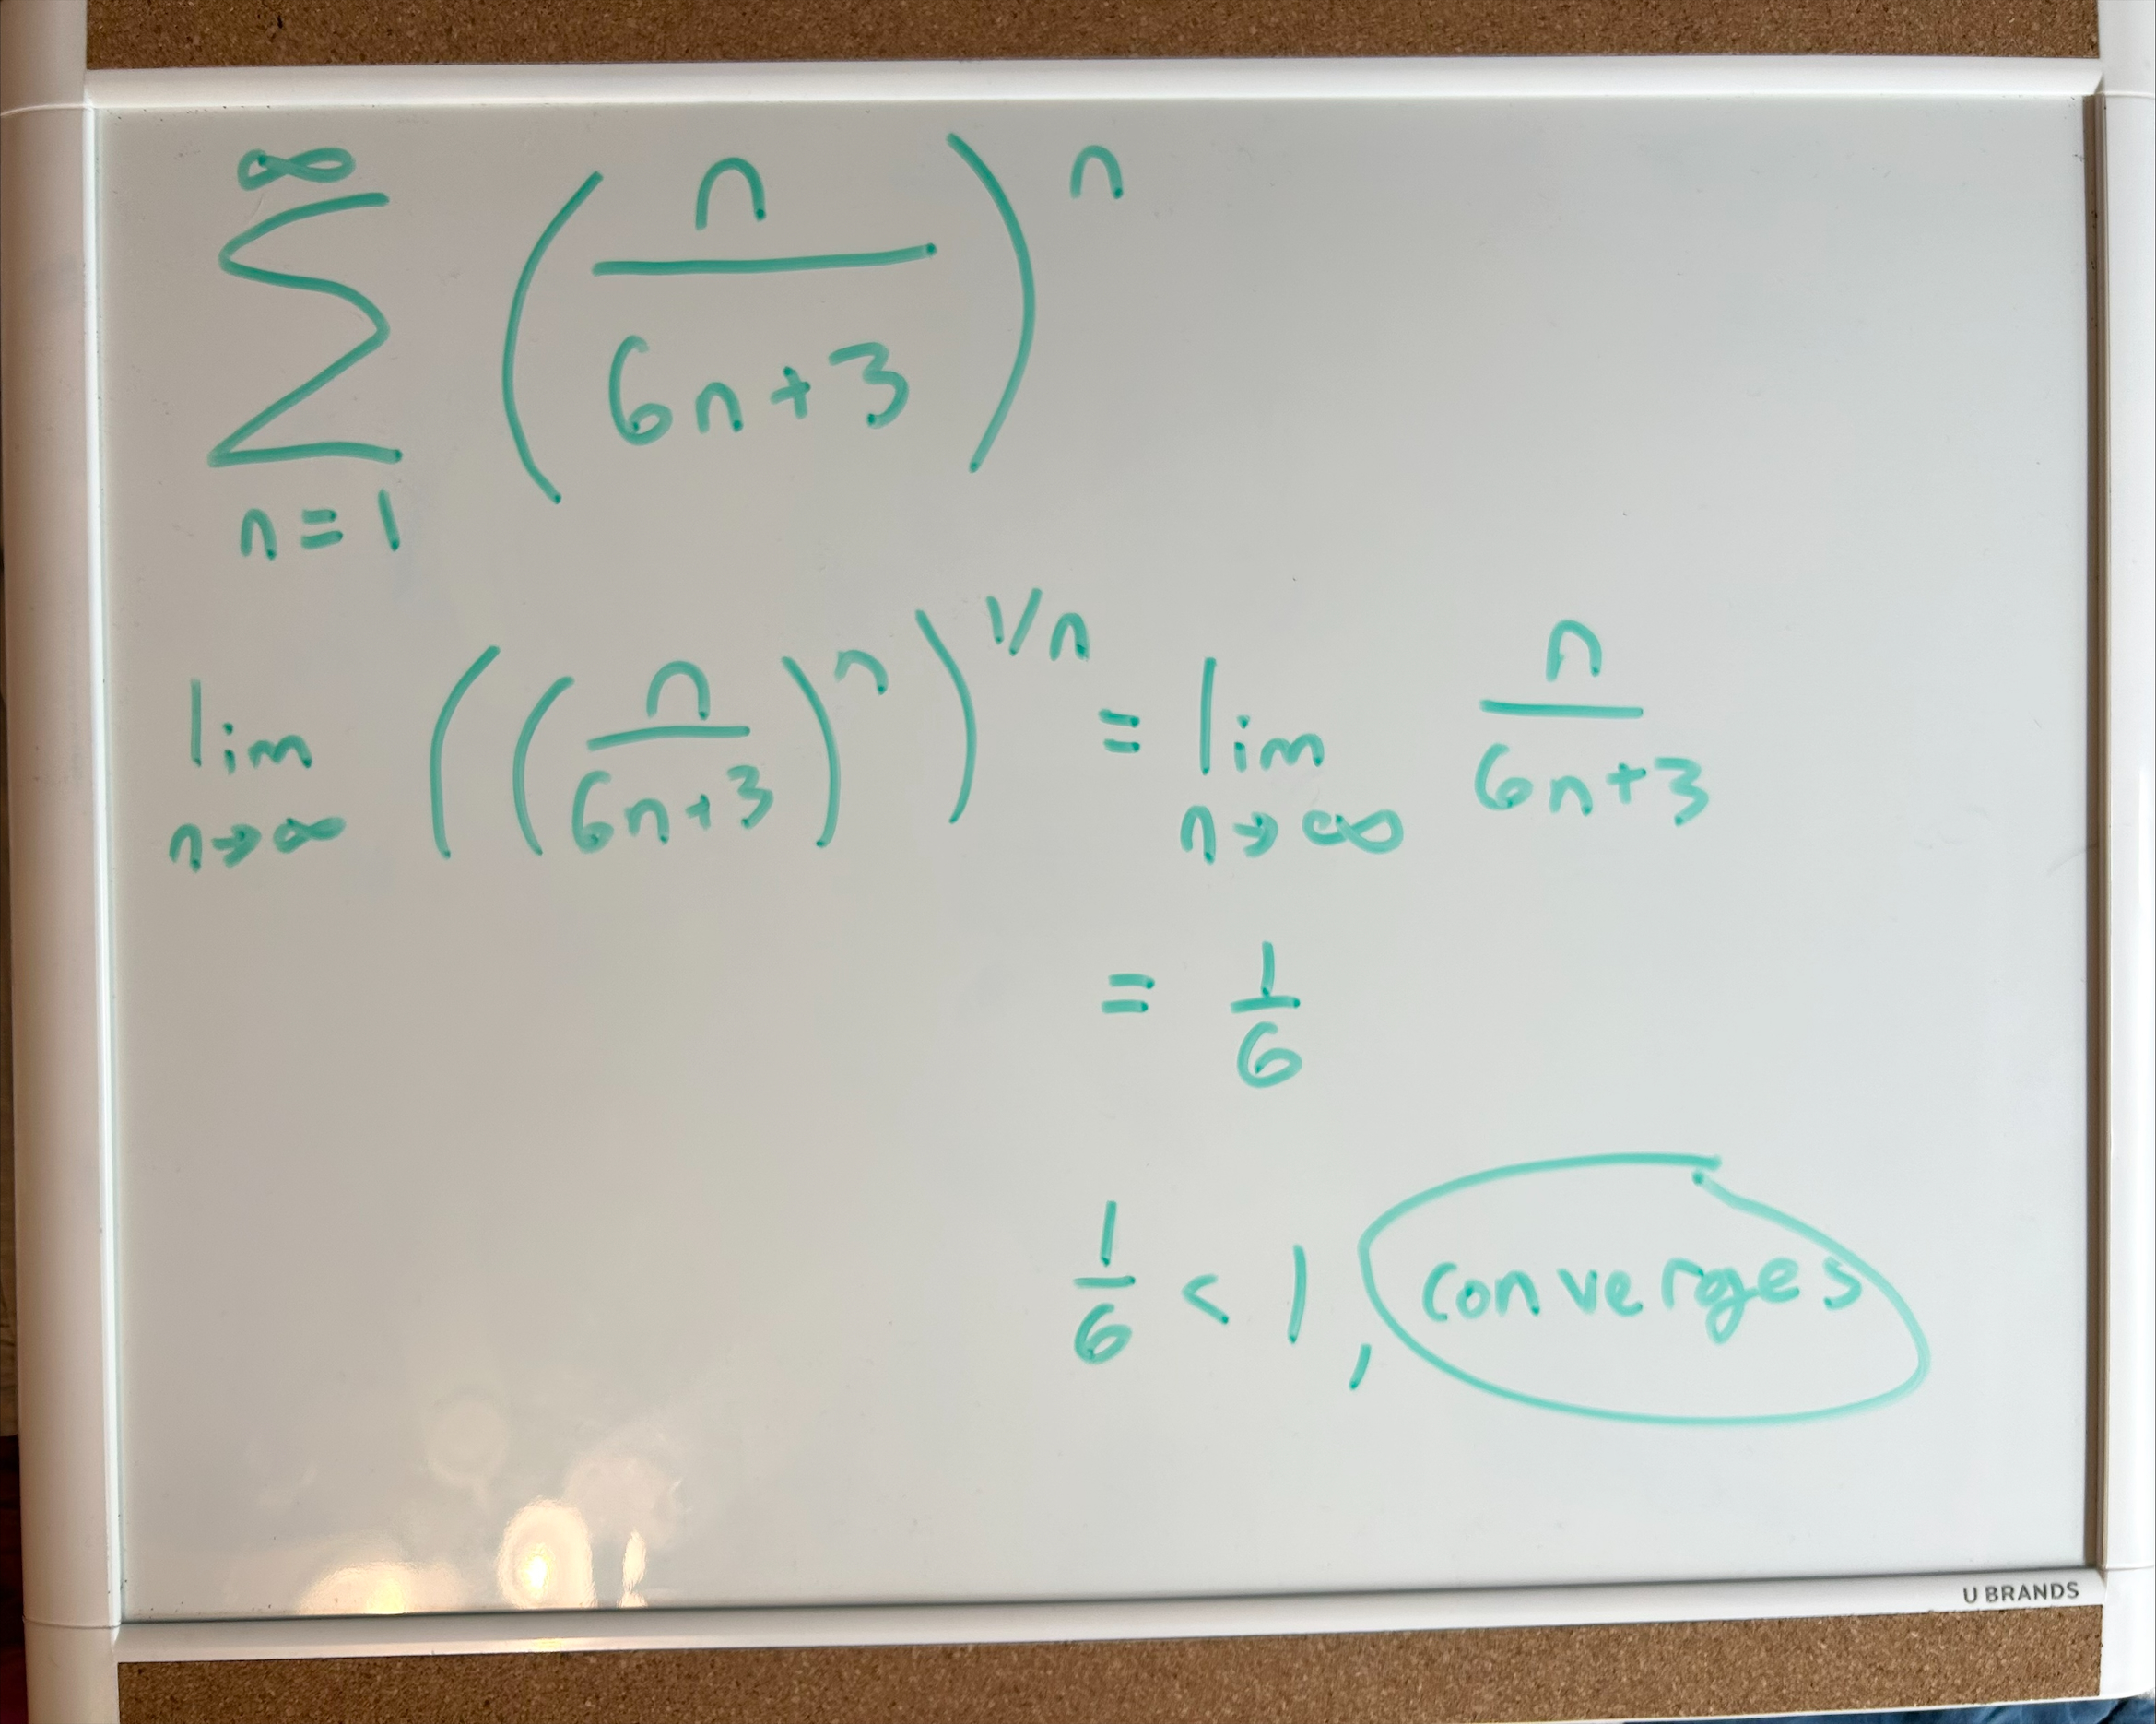 ∞
∑ (n/(6n+3))^n
n=1
lim n→∞ ((n/(6n+3))^n)^(1/n) = lim n→∞ n/(6n+3)
= 1/6
1/6 < 1, converges
U BRANDS